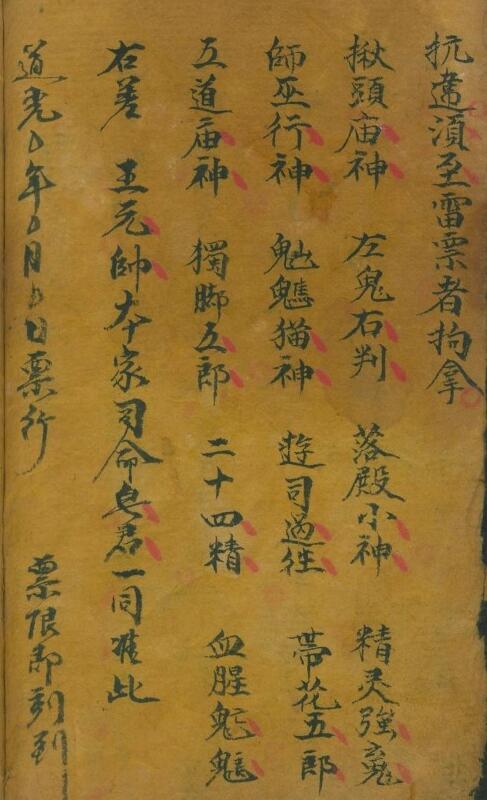 抗違須至雷票者拘拿
揪頭庙神 左鬼右判 落殿小神 精灵強鬼
師巫行神 猫神 遊司過往 帶花五郎
五道庙神 獨脚五郎 二十四精 血腥
右差 王元帥 本家司命皂君一同准此
道光 年 月 日票行 票限即到